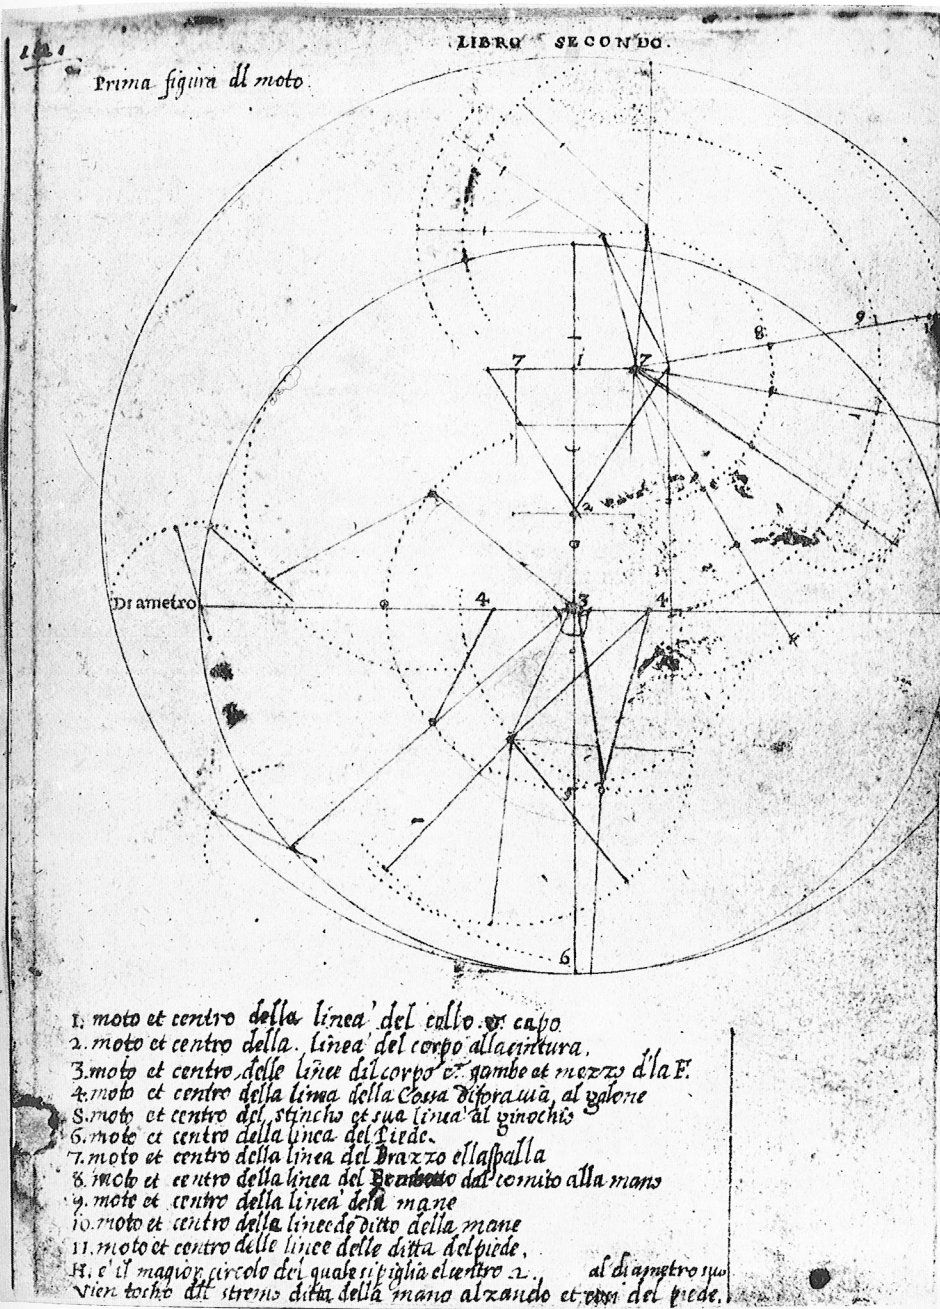 LIBRO SECONDO.
Prima figura dl moto.
8
9
7
1
7
2
Diametro
4
3
4
6
1. moto et centro della linea del collo et capo
2. moto et centro della. linea del corpo alla cintura.
3. moto et centro delle linee dil corpo et gambe et mezzo d'la F.
4. moto et centro della linea della Cossa al galone
5. moto et centro del stincho et sua linea al ginochio
6. moto et centro della linea del Piede.
7. moto et centro della linea del Brazzo ella spalla
8. moto et centro della linea del dal comito alla mano
9. mote et centro della linea dela mane
10. moto et centro delle linee de ditto della mane
11. moto et centro delle linee delle ditta del piede.
H. e il magior circolo del quale si piglia el centro 2. al diametro suo
vien tocho dll stremo ditta della mano alzando et del piede.